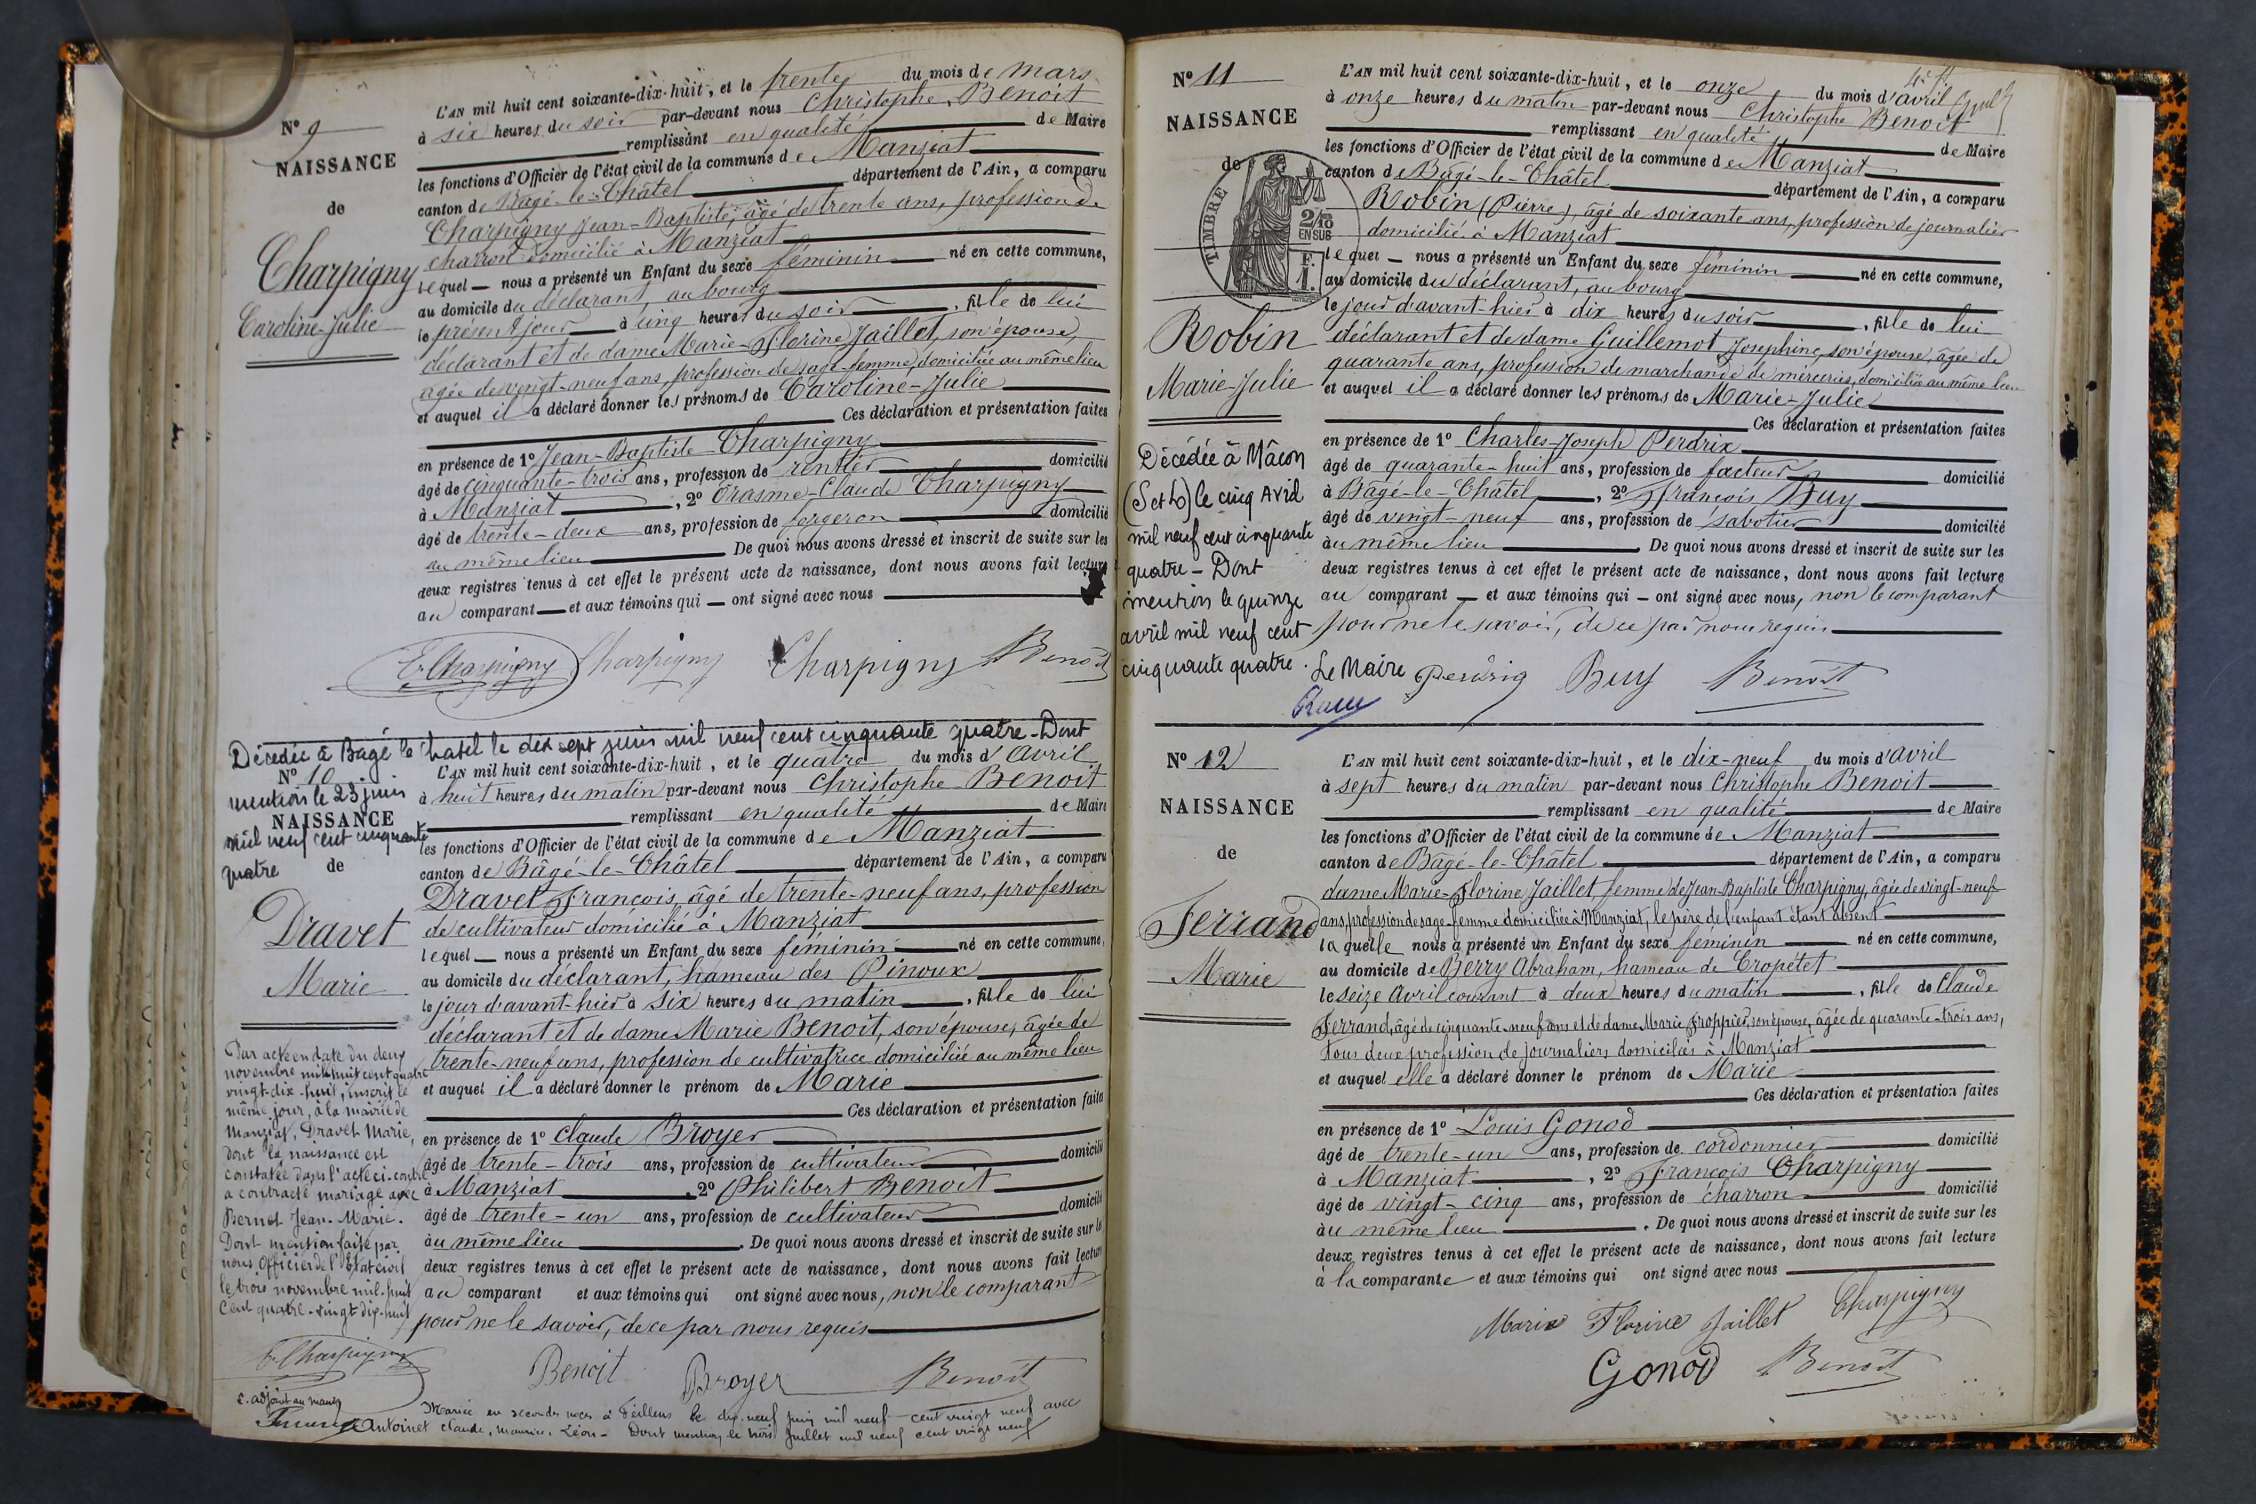 N° 9
NAISSANCE
de
Charpigny
Caroline-Julie
L'AN mil huit cent soixante-dix-huit, et le trente du mois de mars
à six heures du soir par-devant nous Christophe Benoit
remplissant en qualité de Maire
les fonctions d'Officier de l'état civil de la commune de Manziat
canton de Bâgé-le-Châtel département de l'Ain, a comparu
Charpigny Jean-Baptiste, âgé de trente ans, profession de
charron domicilié à Manziat
lequel nous a présenté un Enfant du sexe féminin né en cette commune,
au domicile du déclarant, au bourg
le présent jour à cinq heures du soir, fille de lui
déclarant et de dame Marie-Florine Jaillet, son épouse,
âgée de vingt-neuf ans, profession de sage-femme, domiciliée au même lieu
et auquel il a déclaré donner les prénoms de Caroline-Julie
Ces déclaration et présentation faites
en présence de 1° Jean-Baptiste Charpigny
âgé de cinquante-trois ans, profession de rentier domicilié
à Manziat, 2° Erasme-Claude Charpigny
âgé de trente-deux ans, profession de forgeron domicilié
au même lieu De quoi nous avons dressé et inscrit de suite sur les
deux registres tenus à cet effet le présent acte de naissance, dont nous avons fait lecture
au comparant et aux témoins qui ont signé avec nous
E. Charpigny Charpigny Charpigny Benoit
Décédée à Bagé le Chatel le dix sept juin mil neuf cent cinquante quatre - Dont
mention le 23 juin
mil neuf cent cinquante
quatre
N° 10
NAISSANCE
de
Dravet
Marie
Par acte en date du deux
novembre mil huit cent quatre
vingt-dix-huit, inscrit le
même jour, à la mairie de
Manziat, Dravet Marie,
dont la naissance est
constatée dans l'acte ci-contre
a contracté mariage avec
Bernet Jean-Marie.
Dont mention faite par
nous Officier de l'Etat civil
le trois novembre mil-huit
cent quatre-vingt-dix-huit
E. Charpigny
L'AN mil huit cent soixante-dix-huit, et le quatre du mois d'avril
à huit heures du matin par-devant nous Christophe Benoit
remplissant en qualité de Maire
les fonctions d'Officier de l'état civil de la commune de Manziat
canton de Bâgé-le-Châtel département de l'Ain, a comparu
Dravet François, âgé de trente-neuf ans, profession
de cultivateur domicilié à Manziat
lequel nous a présenté un Enfant du sexe féminin né en cette commune,
au domicile du déclarant, hameau des Pinoux
le jour d'avant-hier à six heures du matin, fille de lui
déclarant et de dame Marie Benoit, son épouse, âgée de
trente-neuf ans, profession de cultivatrice domiciliée au même lieu
et auquel il a déclaré donner le prénom de Marie
Ces déclaration et présentation faites
en présence de 1° Claude Broyer
âgé de trente-trois ans, profession de cultivateur domicilié
à Manziat, 2° Philibert Benoit
âgé de trente-un ans, profession de cultivateur domicilié
au même lieu. De quoi nous avons dressé et inscrit de suite sur les
deux registres tenus à cet effet le présent acte de naissance, dont nous avons fait lecture
au comparant et aux témoins qui ont signé avec nous, non le comparant
pour ne le savoir, de ce par nous requis
Benoit Broyer Benoit
Mariée en secondes noces à Feillens le dix-neuf juin mil neuf cent vingt neuf avec
Antoinet Claude, Maurice, Léon - Dont mention, le trois Juillet mil neuf cent vingt neuf
L'adjoint au maire
N° 11
NAISSANCE
de
TIMBRE
2/10
EN SUS
F.
1.
Robin
Marie-Julie
Décédée à Mâcon
(S et L) le cinq Avril
mil neuf cent cinquante
quatre - Dont
mention le quinze
avril mil neuf cent
cinquante quatre. Le Maire
L'AN mil huit cent soixante-dix-huit, et le onze du mois d'avril
à onze heures du matin par-devant nous Christophe Benoit
remplissant en qualité de Maire
les fonctions d'Officier de l'état civil de la commune de Manziat
canton de Bâgé-le-Châtel département de l'Ain, a comparu
Robin (Pierre), âgé de soixante ans, profession de journalier
domicilié à Manziat
lequel nous a présenté un Enfant du sexe féminin né en cette commune,
au domicile du déclarant, au bourg
le jour d'avant-hier à dix heures du soir, fille de lui
déclarant et de dame Guillemot Josephine, son épouse, âgée de
quarante ans, profession de marchande de mercerie, domiciliée au même lieu
et auquel il a déclaré donner les prénoms de Marie-Julie
Ces déclaration et présentation faites
en présence de 1° Charles-Joseph Perdrix
âgé de quarante-huit ans, profession de facteur domicilié
à Bâgé-le-Châtel, 2° François Buy
âgé de vingt-neuf ans, profession de sabotier domicilié
au même lieu. De quoi nous avons dressé et inscrit de suite sur les
deux registres tenus à cet effet le présent acte de naissance, dont nous avons fait lecture
au comparant et aux témoins qui ont signé avec nous, non le comparant
pour ne le savoir, de ce par nous requis
Perdrix Buy Benoit
N° 12
NAISSANCE
de
Ferrand
Marie
L'AN mil huit cent soixante-dix-huit, et le dix-neuf du mois d'avril
à sept heures du matin par-devant nous Christophe Benoit
remplissant en qualité de Maire
les fonctions d'Officier de l'état civil de la commune de Manziat
canton de Bâgé-le-Châtel département de l'Ain, a comparu
dame Marie-Florine Jaillet, femme de Jean-Baptiste Charpigny, âgée de vingt-neuf
ans, profession de sage-femme domiciliée à Manziat, le père de l'enfant étant absent
laquelle nous a présenté un Enfant du sexe féminin né en cette commune,
au domicile de Berry Abraham, hameau de Cropétet
le seize avril courant à deux heures du matin, fille de Claude
Ferrand, âgé de cinquante-neuf ans et de dame Marie Froppier, son épouse, âgée de quarante-trois ans,
tous deux profession de journaliers domiciliés à Manziat
et auquel elle a déclaré donner le prénom de Marie
Ces déclaration et présentation faites
en présence de 1° Louis Gonod
âgé de trente-un ans, profession de cordonnier domicilié
à Manziat, 2° François Charpigny
âgé de vingt-cinq ans, profession de charron domicilié
au même lieu. De quoi nous avons dressé et inscrit de suite sur les
deux registres tenus à cet effet le présent acte de naissance, dont nous avons fait lecture
à la comparante et aux témoins qui ont signé avec nous
Marie Florine Jaillet Charpigny
Gonod Benoit